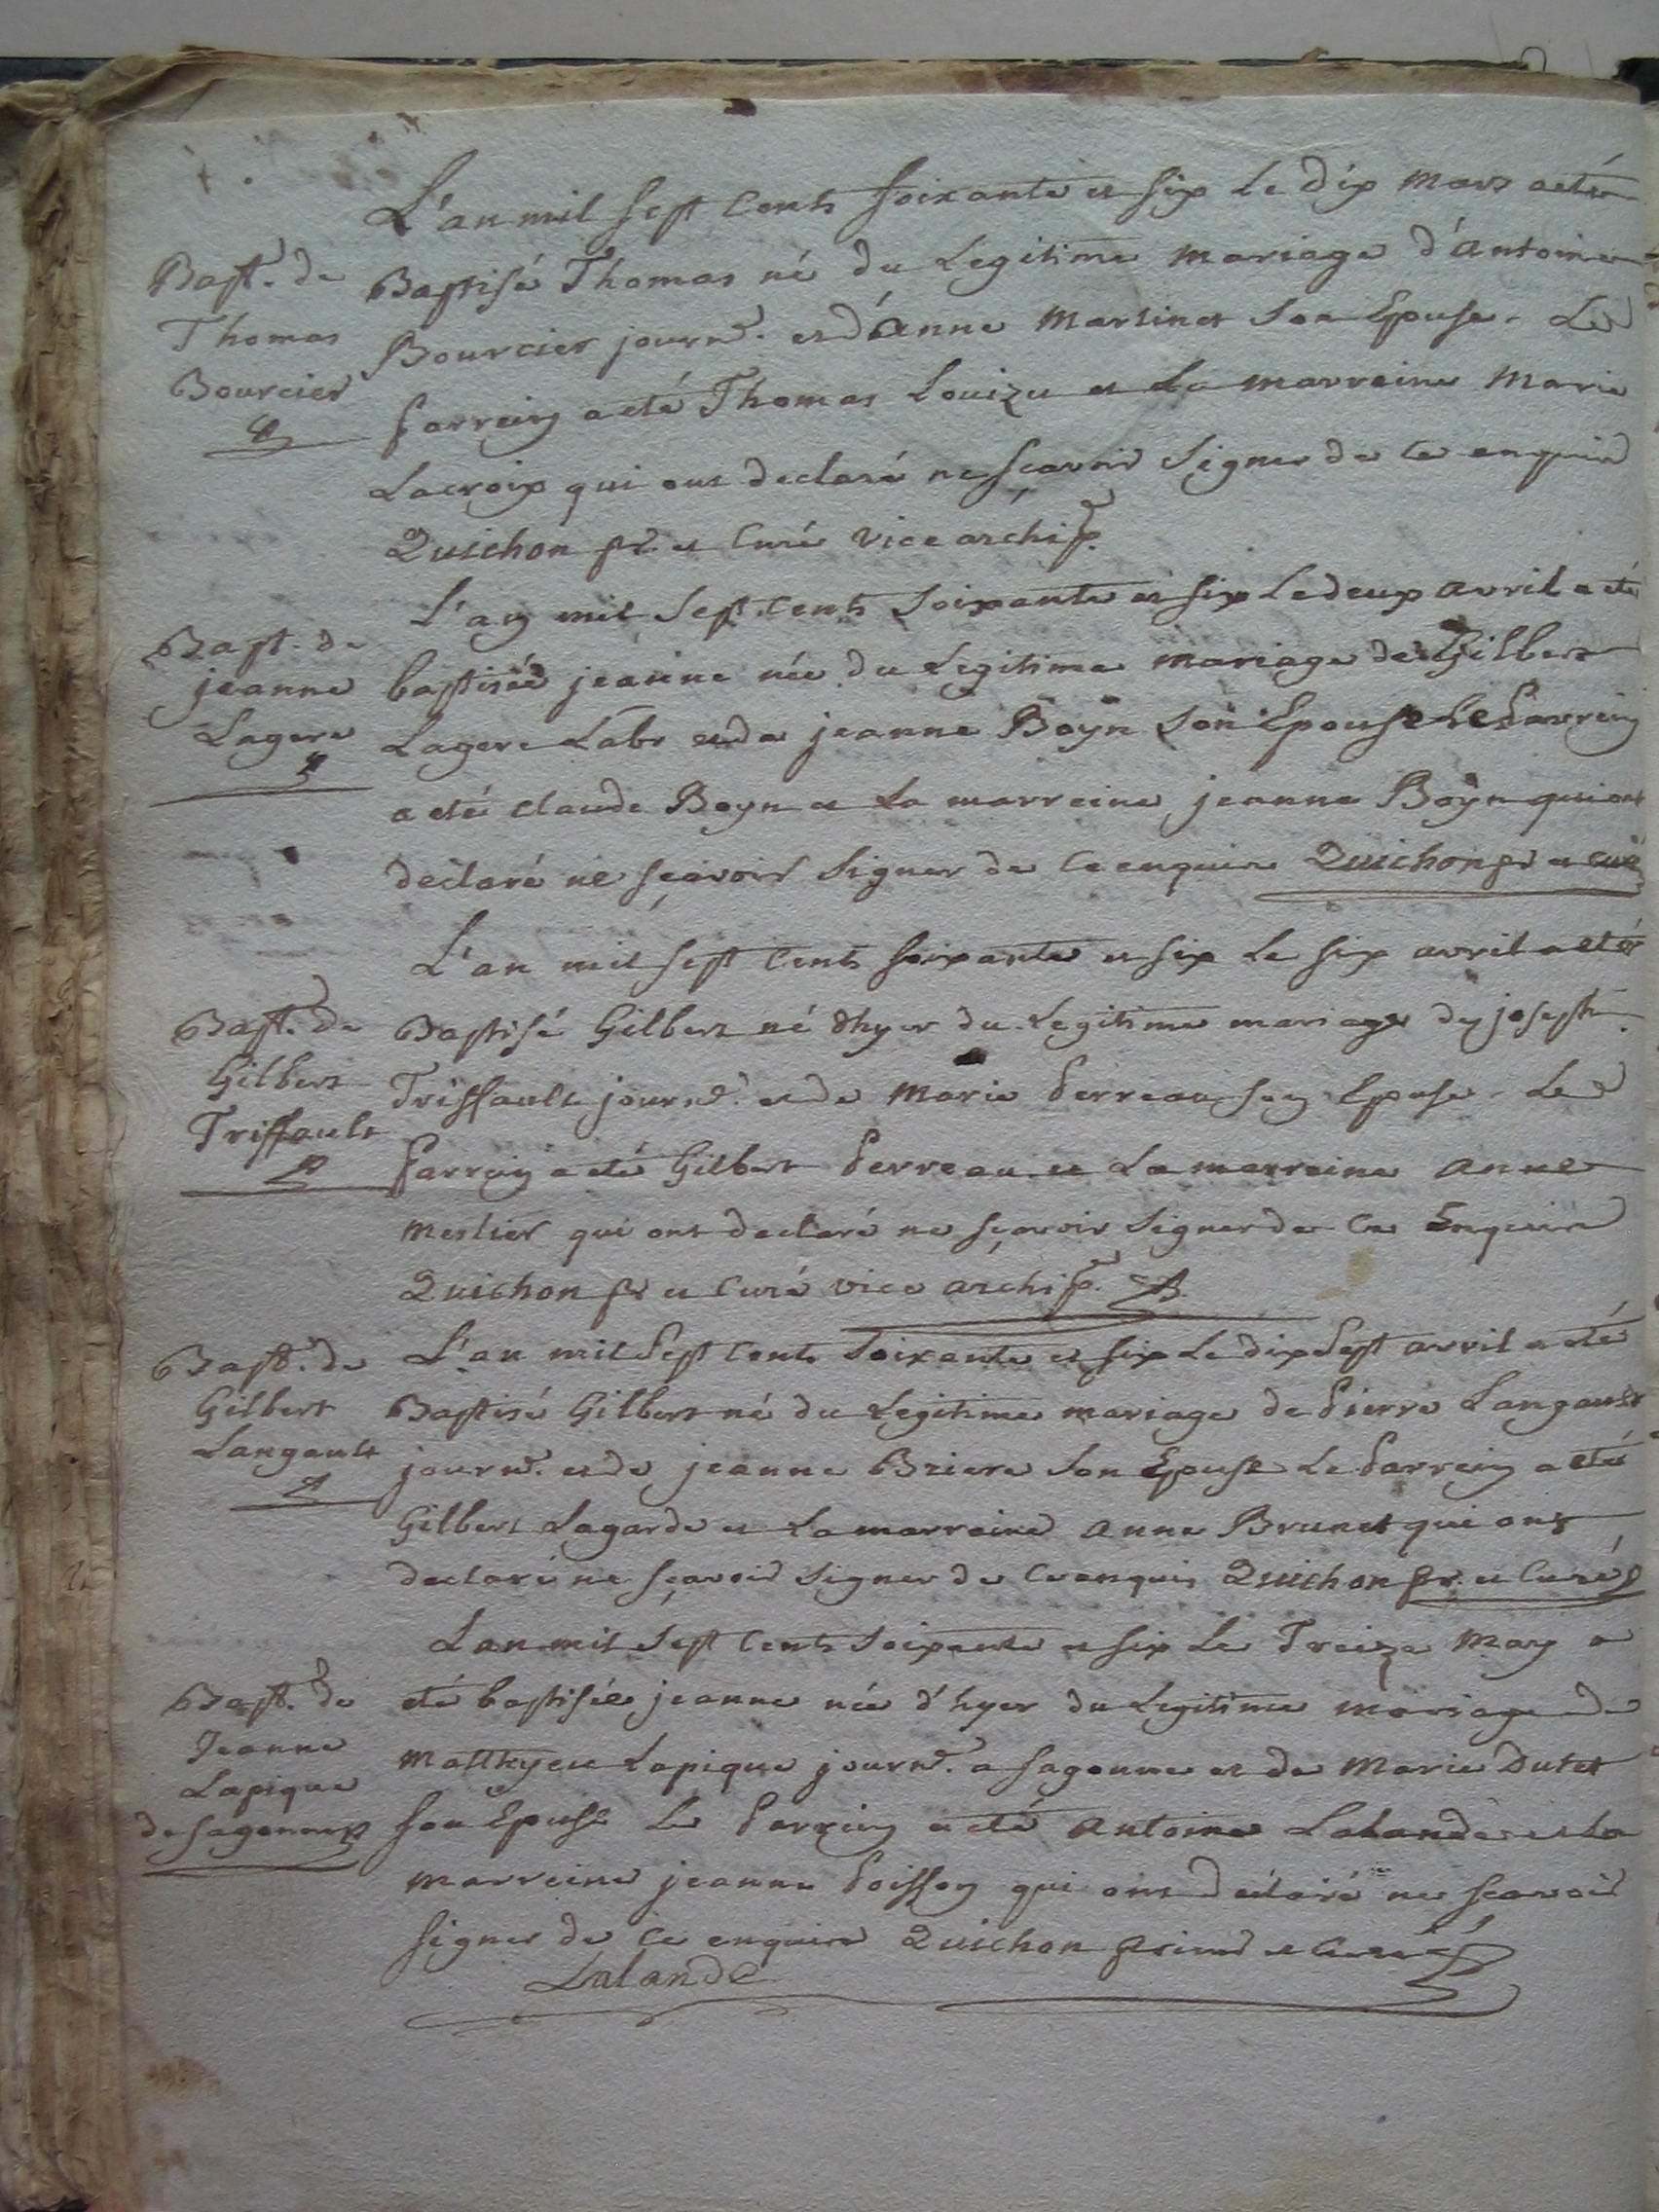 L'an mil sept cents soixante et six le dix mars a eté
Bapt. de
Thomas
Bourcier
Baptisé Thomas né du Legitime mariage d'antoine
Bourcier journ.er et d'anne Martinet son Epouse. Le
parrein a eté Thomas Louizu et La marreine Marie
Lacroix qui ont declaré ne sçavoir signer de ce enquis
Quichon pr. et Curé vice archip.e
Bapt. de
jeanne
Lagere
L'an mil sept cents soixante et six Le deux avril a eté
baptisée jeanne née du Legitime mariage de Gilbert
Lagere Labr et de jeanne Boÿn son Epouse Le Parrein
a eté claude Boyn et La marreine jeanne Boÿn qui ont
déclaré ne sçavoir signer de ce enquis Quichon pr et curé
Bapt. de
Gilbert
Triffault
L'an mil sept cents soixante et six Le six avril a eté
Baptisé Gilbert né d'hyer du Legitime mariage de joseph
Triffault journ.er et de Marie Perreau son Epouse. Le
Parrein a eté Gilbert Perreau et La marreine anne
Meslier qui ont declaré ne sçavoir signer de ce Enquis
Quichon pr et Curé vice archip.e
Bapt. de
Gilbert
Langault
L'an mil sept cents soixante et six Le dix sept avril a eté
Baptisé Gilbert né du Legitime mariage de Pierre Langault
journ.er et de jeanne Briere son Epouse Le Parrein a eté
Gilbert Lagarde et La marreine anne Brunet qui ont
declaré ne sçavoir signer de ce enquis Quichon pr. et Curé
Bapt. de
Jeanne
Lapique
de sagonne
L'an mil sept cents soixante et six Le Treize May a
eté baptisée jeanne née d'hyer du Legitime mariage de
Matthyeu Lapique journ.er a sagonne et de Marie Dutet
son Epouse Le Parrein a eté antoine Lalande et La
marreine jeanne Poisson qui ont déclaré ne sçavoir
signer de ce enquis Quichon prieur et Curé
Lalande